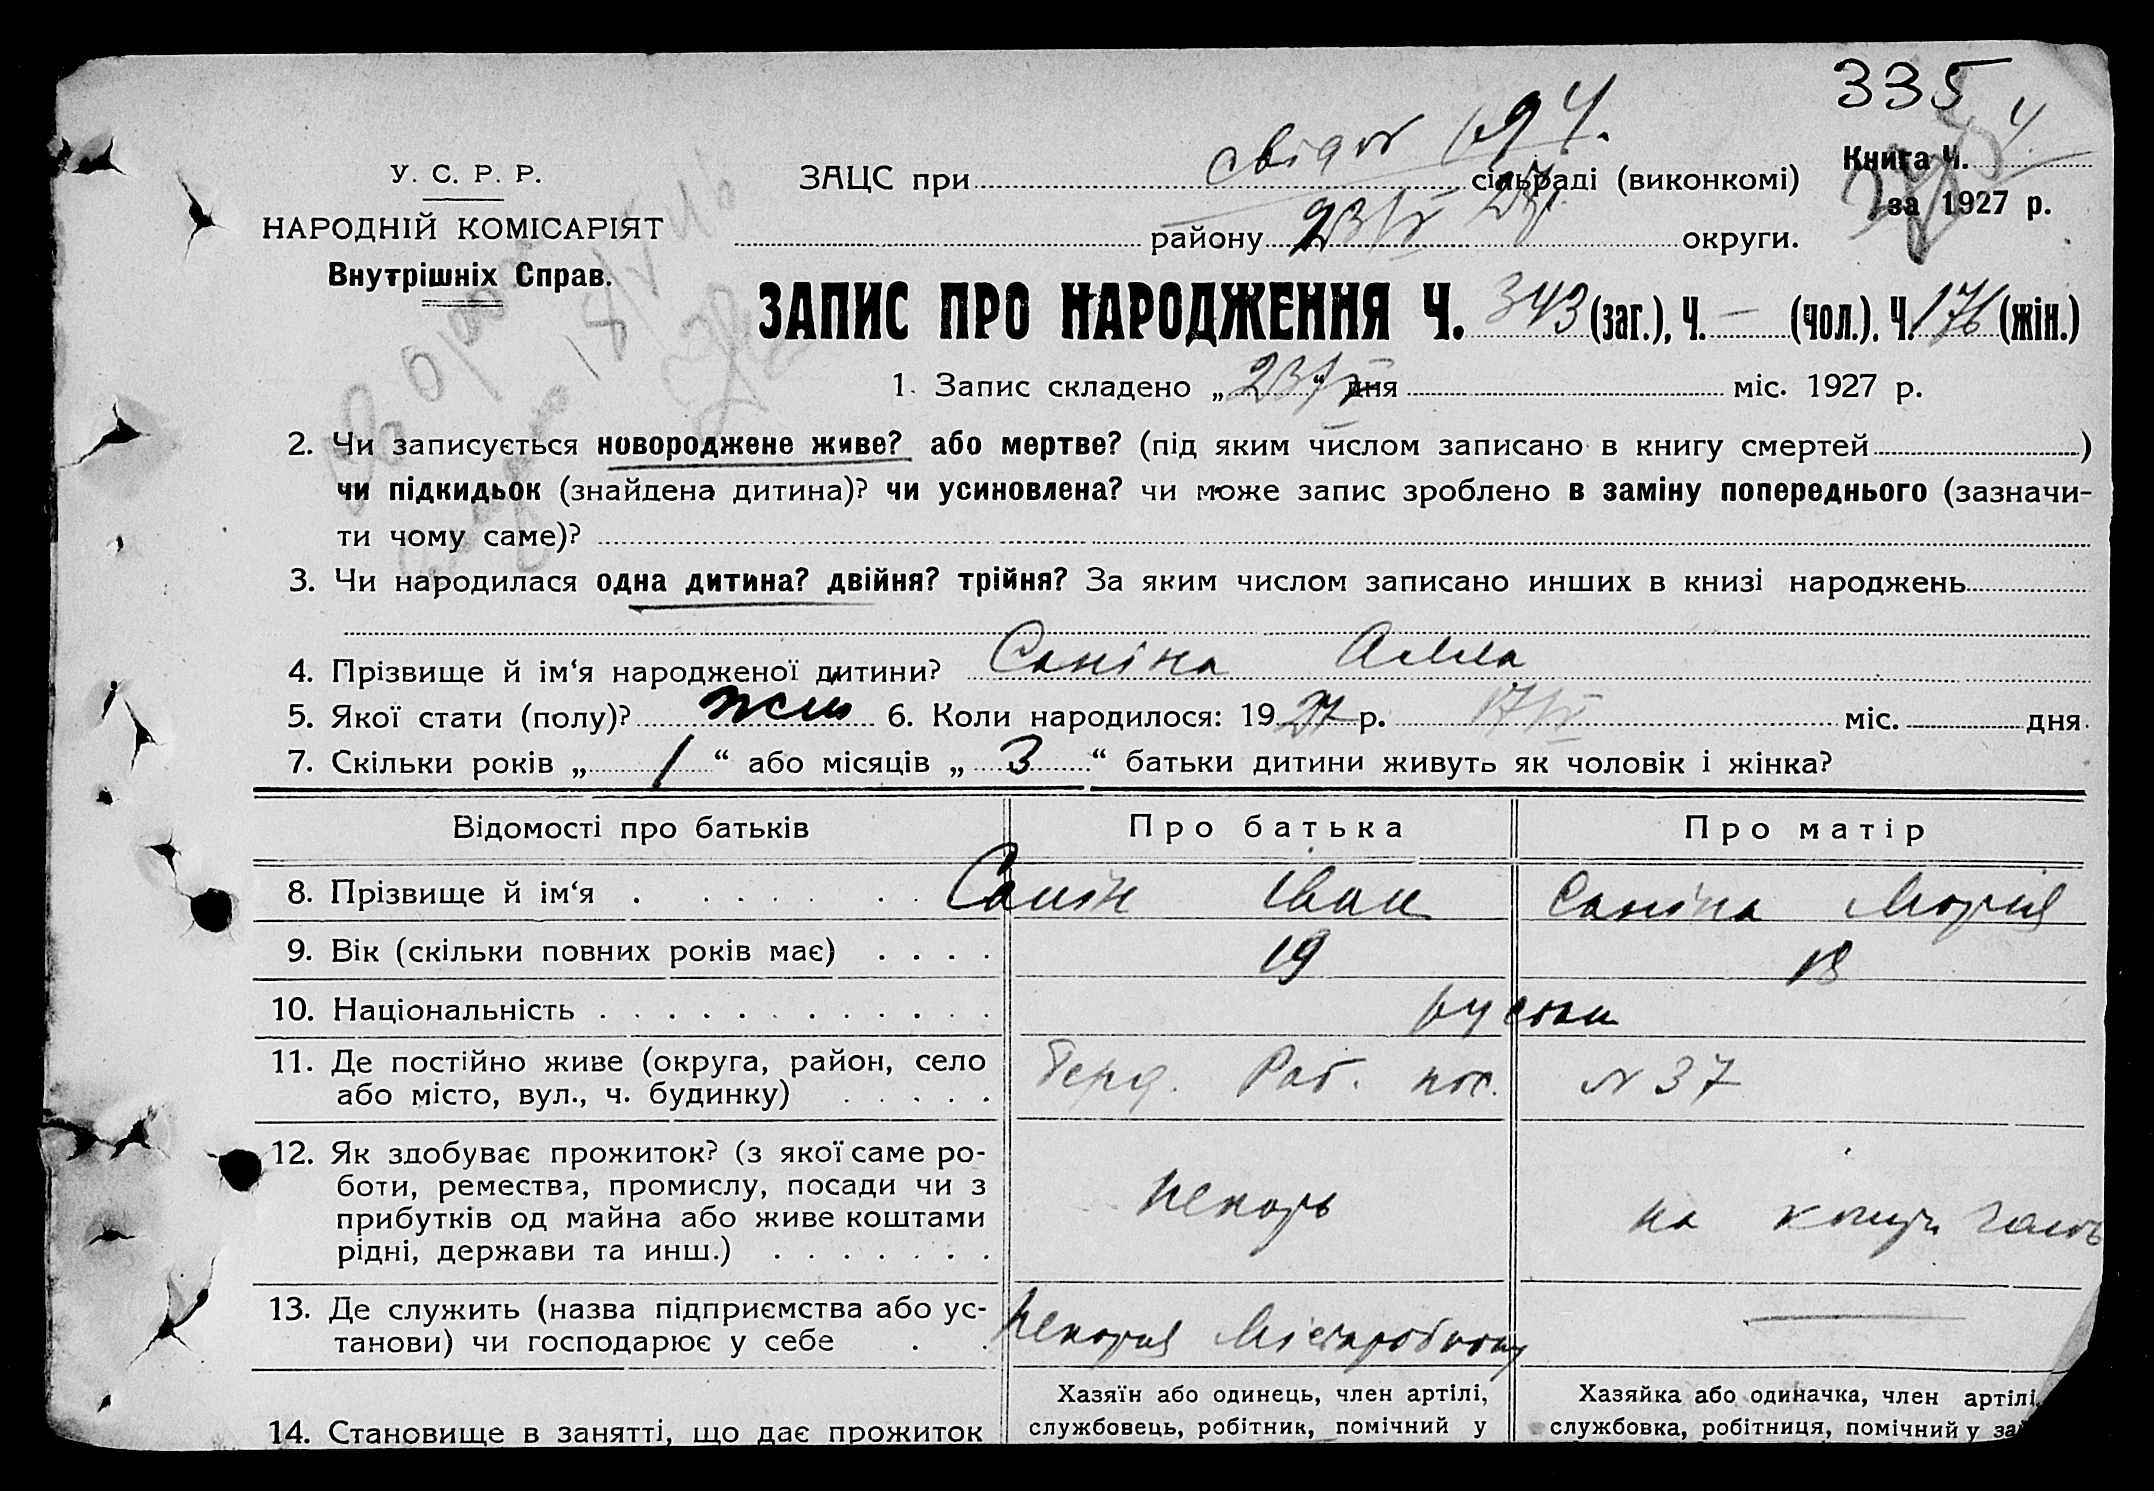 335
свідот 194.
У. С. Р. Р.
НАРОДНІЙ КОМІСАРІЯТ
Внутрішніх Справ.
ЗАЦС при сільраді (виконкомі)
Книга Ч. 4
за 1927 р.
району 23/V 27 округи.
ЗАПИС ПРО НАРОДЖЕННЯ Ч. 343 (заг.), Ч. — (чол.). Ч. 176 (жін.)
1. Запис складено „23/V“ дня міс. 1927 р.
2. Чи записується новороджене живе? або мертве? (під яким числом записано в книгу смертей )
чи підкидьок (знайдена дитина)? чи усиновлена? чи може запис зроблено в заміну попереднього (зазначи-
ти чому саме)?
3. Чи народилася одна дитина? двійня? трійня? За яким числом записано инших в книзі народжень
4. Прізвище й ім‘я народженої дитини? Саніна Алла
5. Якої стати (полу)? жін 6. Коли народилося: 1927 р. 17/IV міс. дня
7. Скільки років „ 1 “ або місяців „ 3 “ батьки дитини живуть як чоловік і жінка?
Відомості про батьків Про батька Про матір
8. Прізвище й ім‘я Санін Іван Саніна Марія
9. Вік (скільки повних років має) 19 18
10. Національність руські
11. Де постійно живе (округа, район, село
або місто, вул., ч. будинку) Раб. пос. N 37
12. Як здобуває прожиток? (з якої саме ро-
боти, ремества, промислу, посади чи з
прибутків од майна або живе коштами
рідні, держави та инш.) пекарь на
13. Де служить (назва підприємства або ус-
танови) чи господарює у себе пекарня —
14. Становище в занятті, що дає прожиток
Хазяїн або одинець, член артілі,
службовець, робітник, помічний у
Хазяйка або одиначка, член артілі,
службовка, робітниця, помічний у за